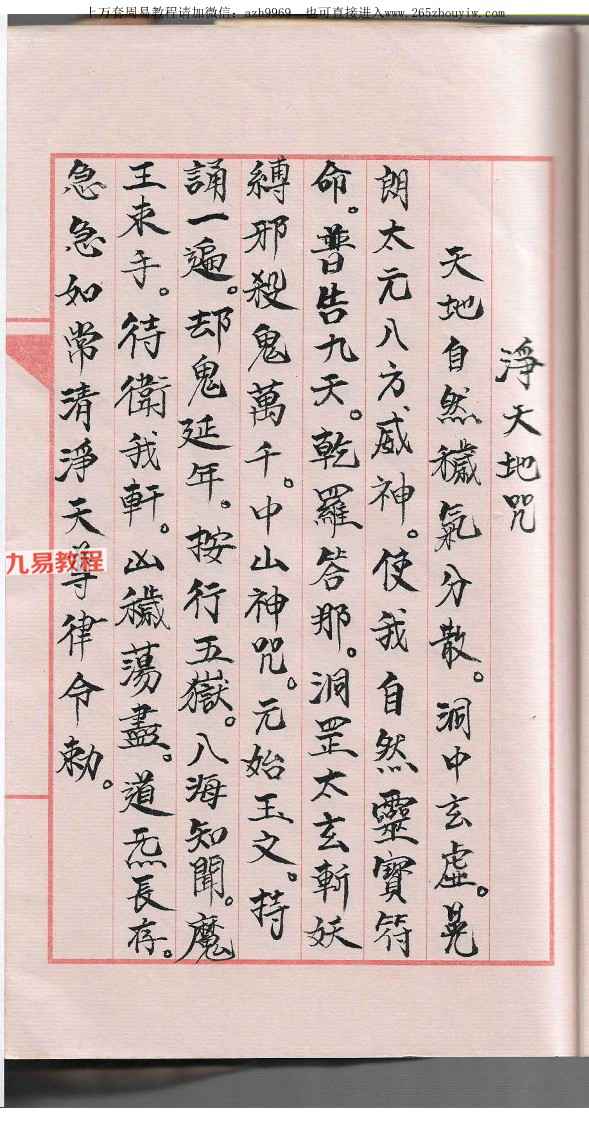 上万套周易教程请加微信：azh9969，也可直接进入www.265zhouyiw.com
淨天地咒
天地自然穢氣分散。洞中玄虛。晃
朗太元八方威神。使我自然靈寶符
命。普告九天。乾羅答那。洞罡太玄斬妖
縛邪殺鬼萬千。中山神咒。元始玉文。持
誦一遍。却鬼延年。按行五嶽。八海知聞。魔
王束手。待衛我軒。凶穢蕩盡。道炁長存。
急急如常清淨天尊律令勅。
九易教程